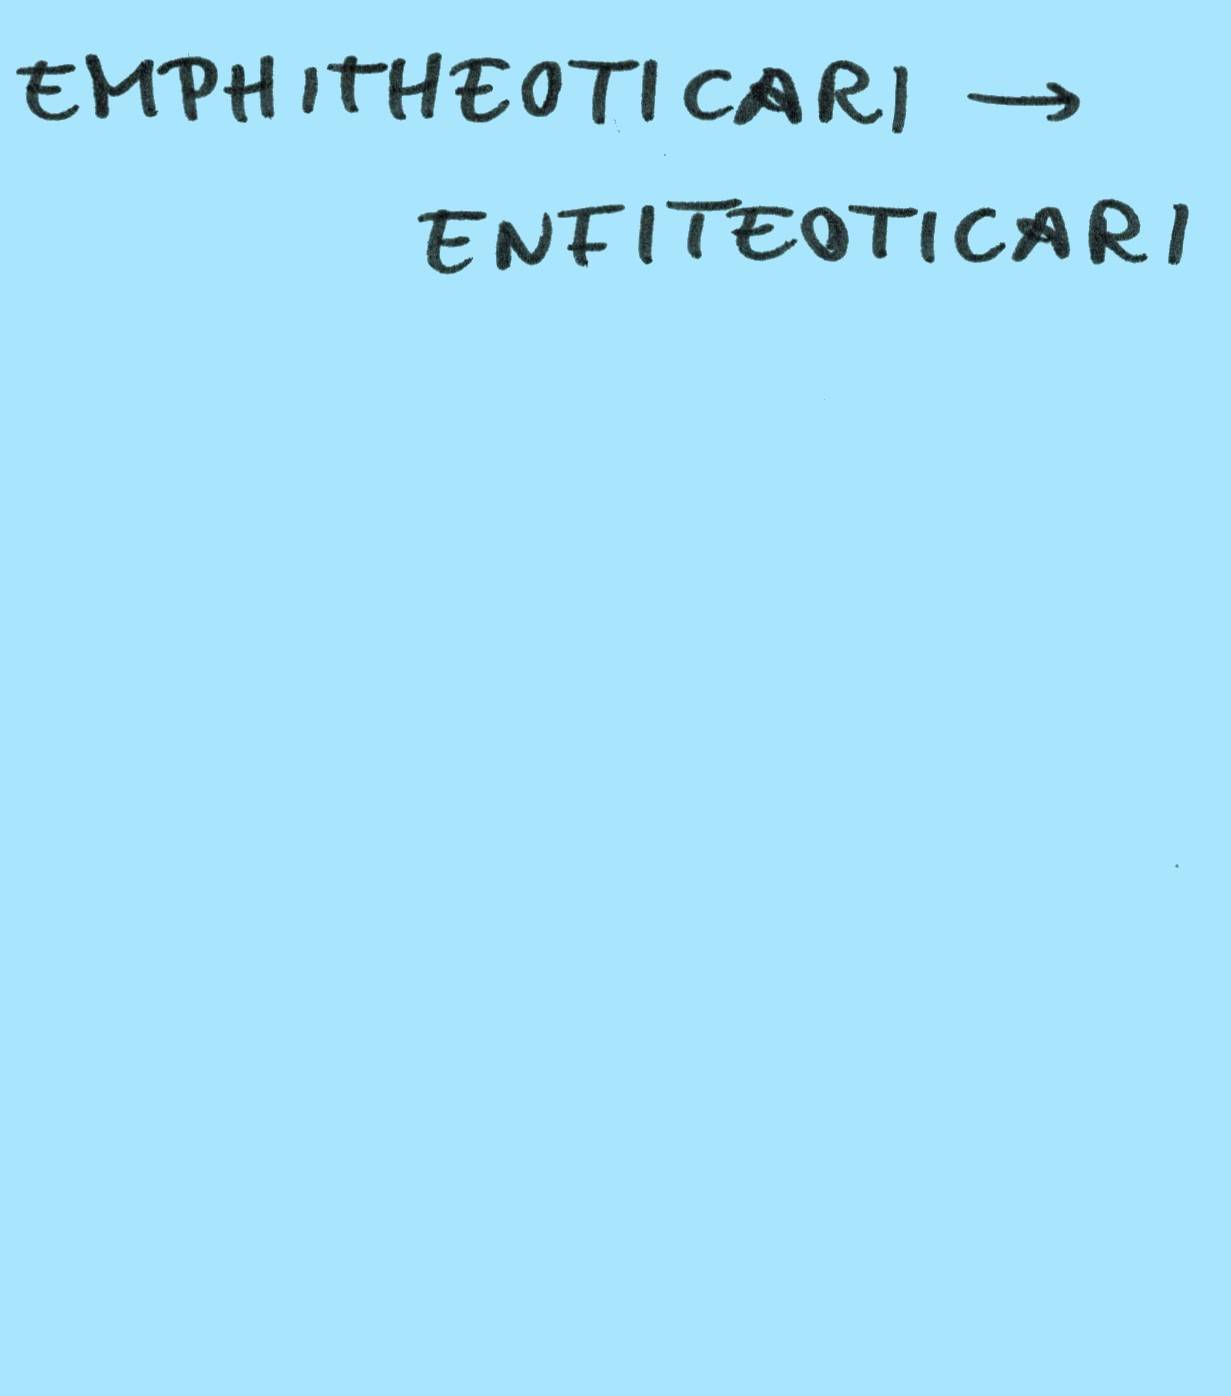 EMPHITHEOTICARI →
ENFITEOTICARI